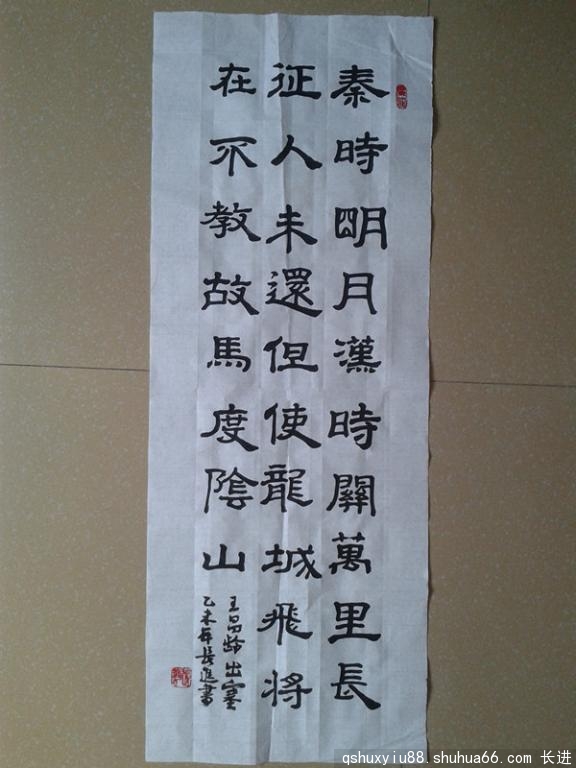 秦時明月漢時關萬里長
征人未還但使龍城飛將
在不教故馬度陰山
王昌龄出塞
乙未年長進書
qshuxyiu88.shuhua66.com 长进